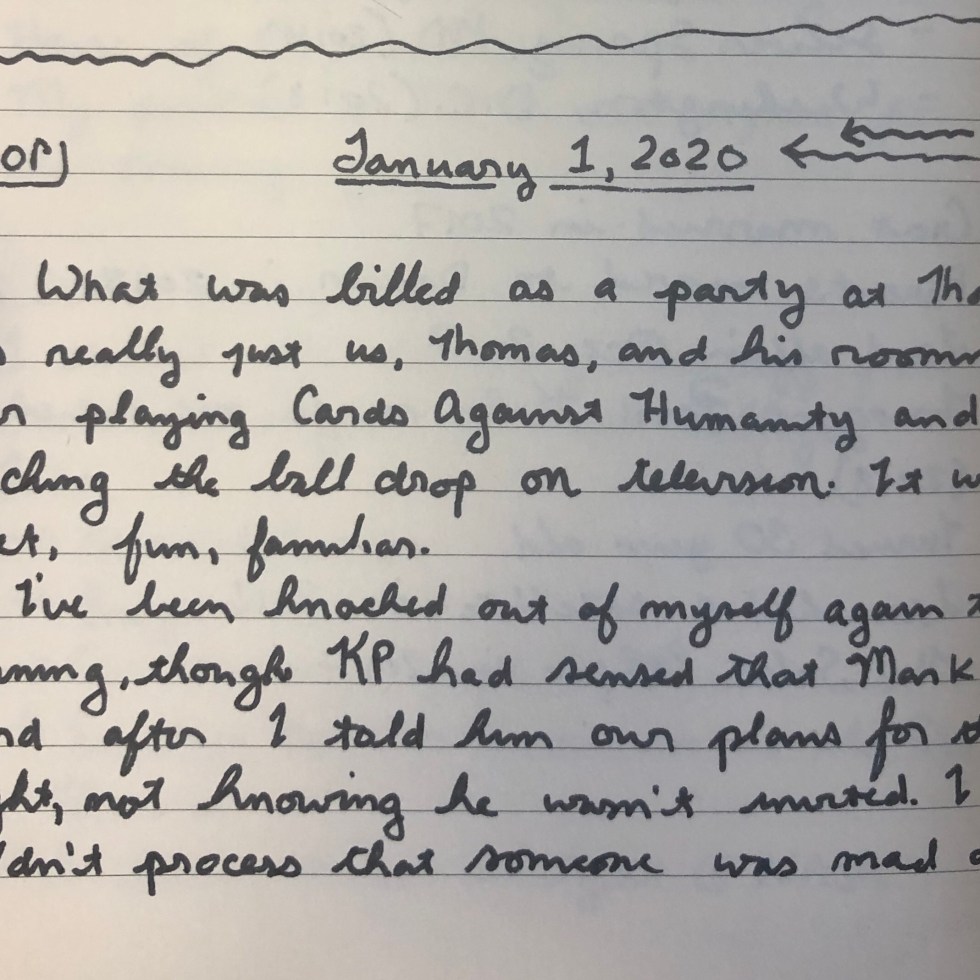 or) January 1, 2020
What was billed as a party at Tho
really just us, Thomas, and his room
playing Cards Against Humanity and
ching the ball drop on television. It w
et, fun, familiar.
I've been knocked out of myself again
ning, though KP had sensed that Mark
nd after I told him our plans for
ght, not knowing he wasn't invited. I
dn't process that someone was mad